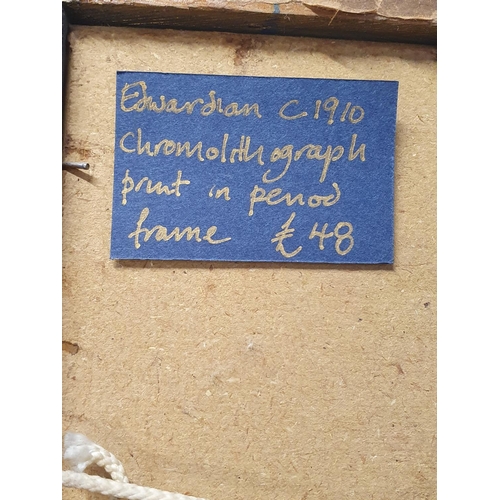 Edwardian C1910
chromolithograph
print in period
frame £48